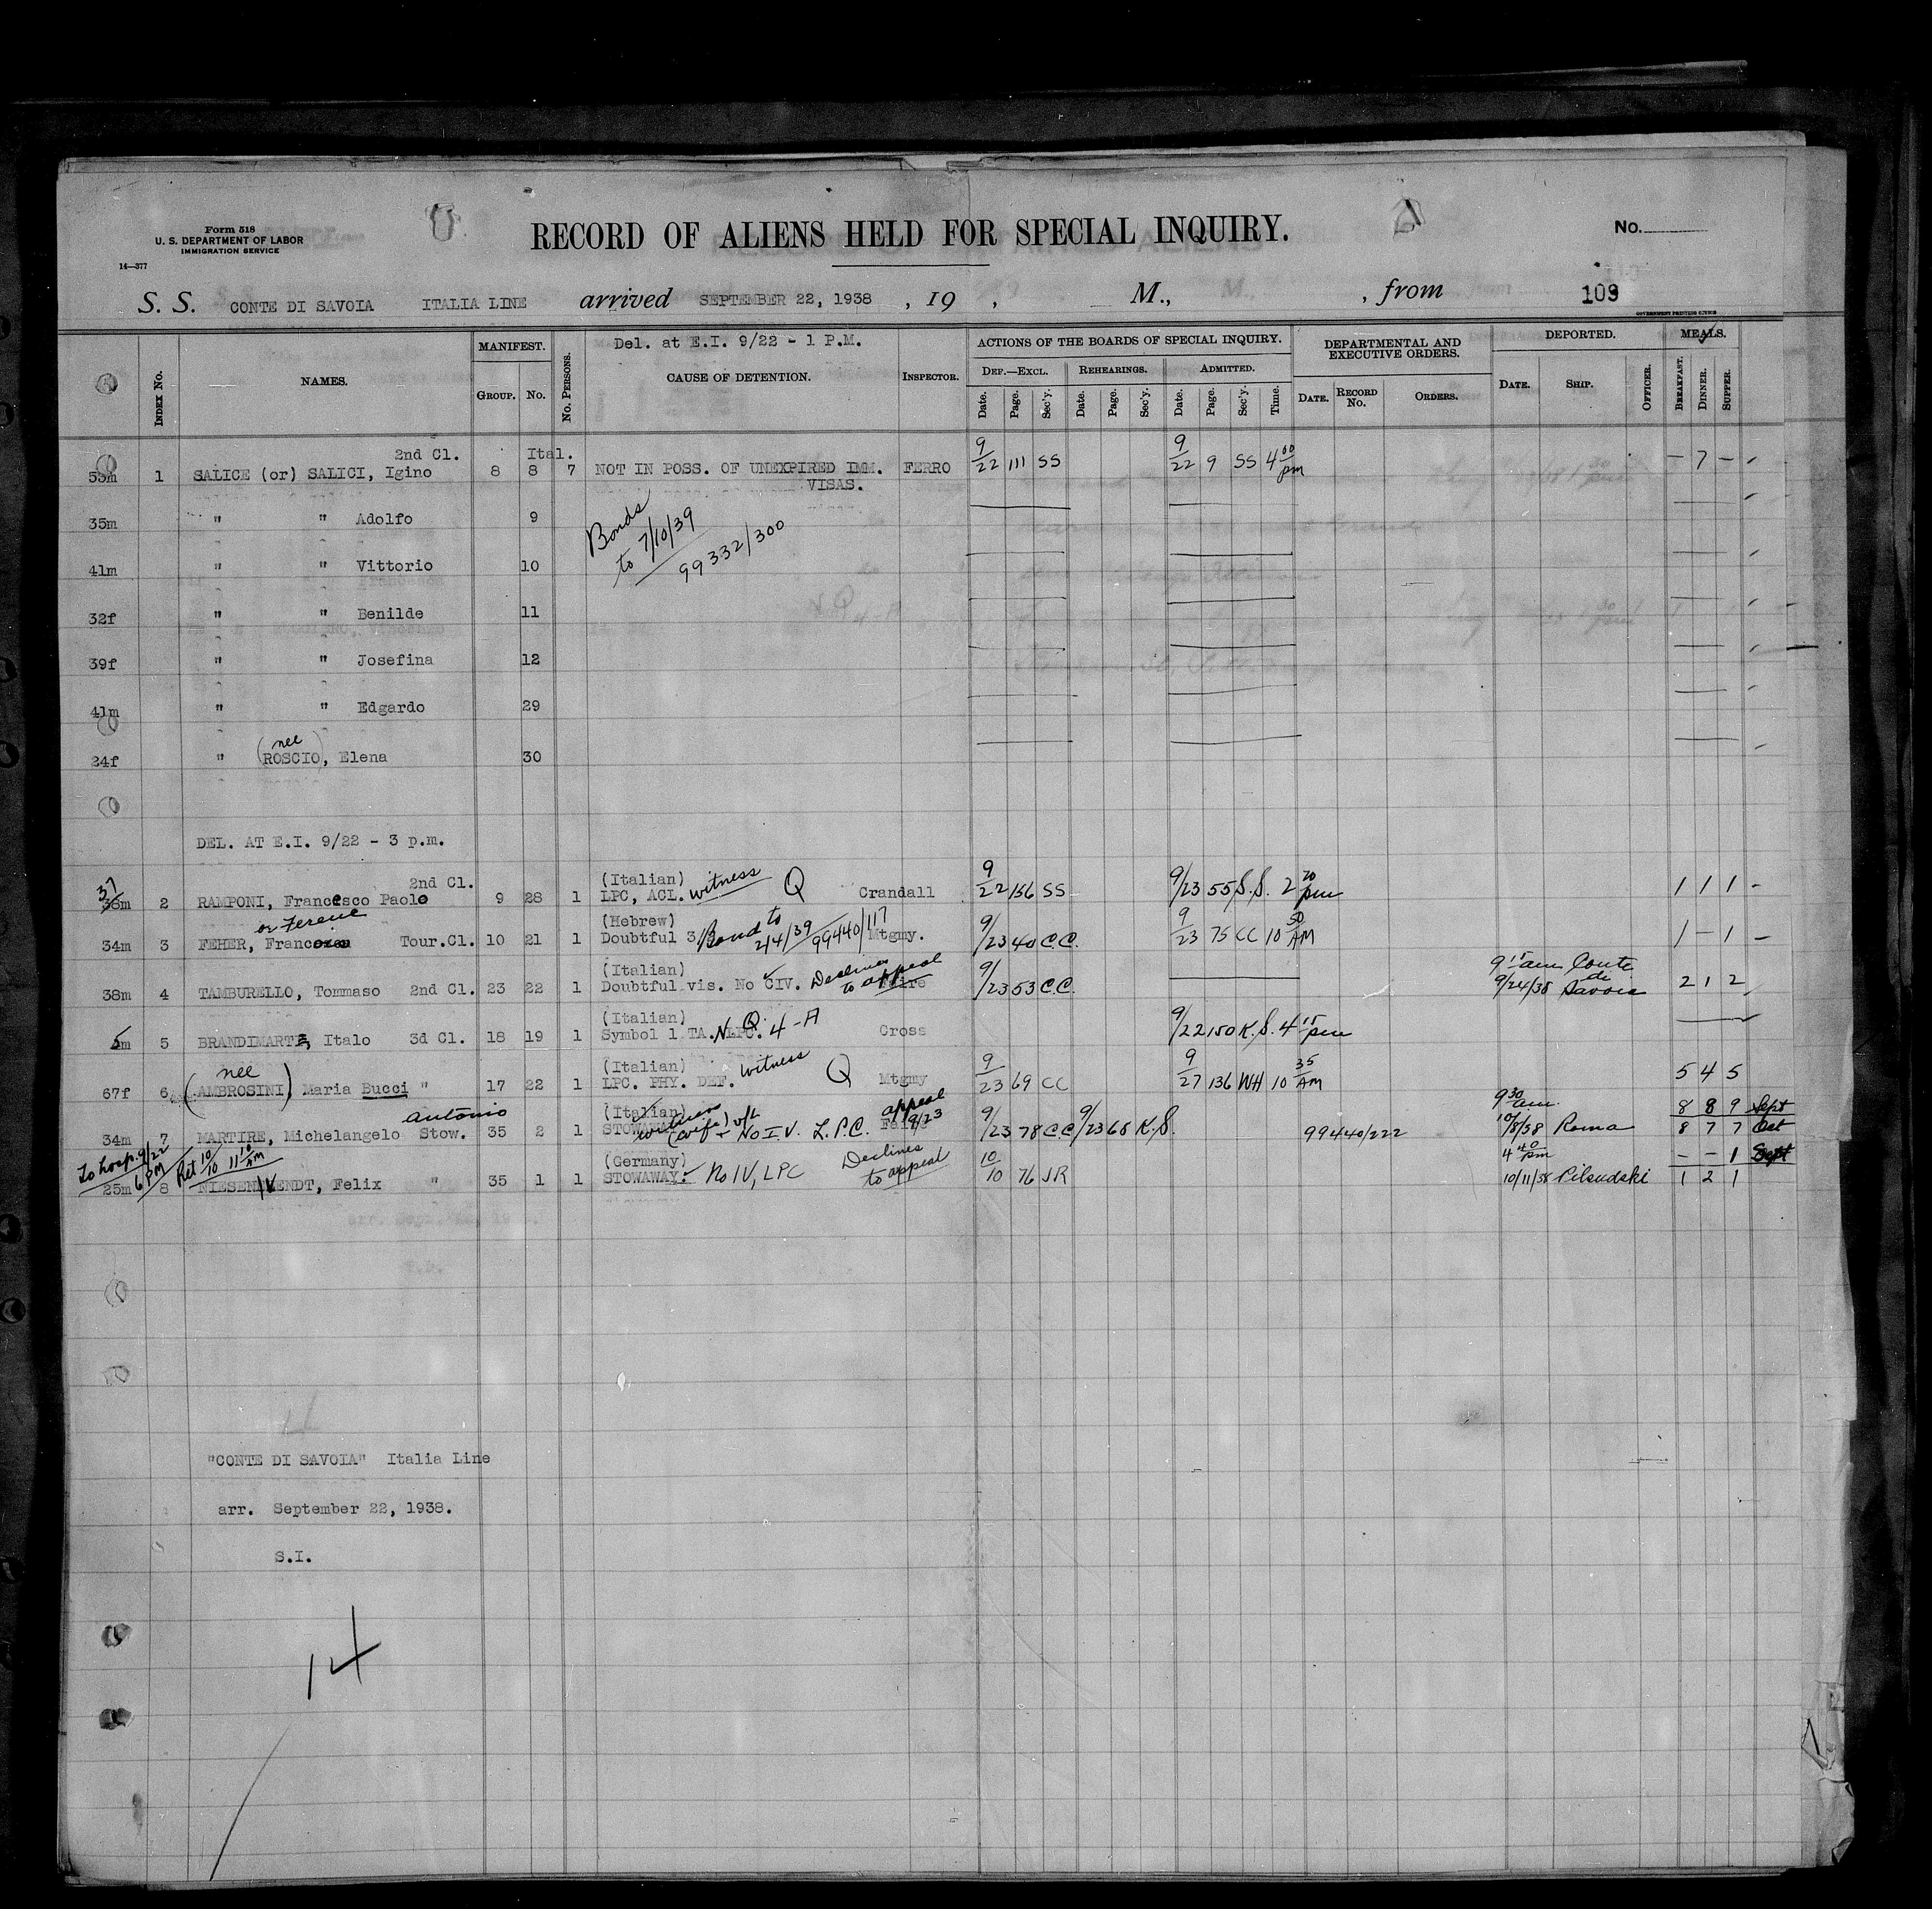 Form 518
U. S. DEPARTMENT OF LABOR
IMMIGRATION SERVICE
14—377
RECORD OF ALIENS HELD FOR SPECIAL INQUIRY.
No.
S. S. CONTE DI SAVOIA ITALIA LINE arrived SEPTEMBER 22, 1938 , 19 , M., , from 109
GOVERNMENT PRINTING OFFICE
INDEX NO. NAMES. MANIFEST. GROUP. NO. NO. PERSONS. Del. at E.I. 9/22 - 1 P.M. CAUSE OF DETENTION. INSPECTOR. ACTIONS OF THE BOARDS OF SPECIAL INQUIRY. DEF.—EXCL. Date. Page. Sec'y. REHEARINGS. Date. Page. Sec'y. ADMITTED. Date. Page. Sec'y. Time. DEPARTMENTAL AND EXECUTIVE ORDERS. DATE. RECORD NO. ORDERS. DEPORTED. DATE. SHIP. OFFICER. MEALS. BREAKFAST. DINNER. SUPPER.
2nd Cl. Ital.
53m 1 SALICE (or) SALICI, Igino 8 8 7 NOT IN POSS. OF UNEXPIRED IMM. FERRO 9/22 111 SS 9/22 9 SS 4 00 pm – 7 –
VISAS.
35m " " Adolfo 9 Bonds
41m " " Vittorio 10 to 7/10/39
99332/300
32f " " Benilde 11
39f " " Josefina 12
41m " " Edgardo 29
nee
24f " (ROSCIO), Elena 30
DEL. AT E.I. 9/22 - 3 p.m.
37 2nd Cl. (Italian)
38m 2 RAMPONI, Francesco Paolo 9 28 1 LPC, ACL. witness Q Crandall 9/22 156 SS 9/23 55 S.S. 2 20 pm 1 1 1 –
or Ferene (Hebrew)
34m 3 FEHER, Tour.Cl. 10 21 1 Doubtful 3 Bond to 2/4/39 99440/117 Mtgmy. 9/23 40 C.C. 9/23 75 CC 10 50 AM 1 – 1 –
(Italian)
38m 4 TAMBURELLO, Tommaso 2nd Cl. 23 22 1 Doubtful vis. No CIV. Declines to appeal 9/23 53 C.C. 9 15 am 9/24/38 Conte di Savoia 2 1 2
(Italian)
5 BRANDIMARTE, Italo 3d Cl. 18 19 1 Symbol 1 TA. N. LPC. Q. 4-A Cross 9/22 150 K.S. 4 15 pm
nee (Italian)
67f 6 (AMBROSINI) Maria Bucci " 17 22 1 LPC. PHY. DEF. witness Q Mtgmy 9/23 69 CC 9/27 136 WH 10 35 AM 5 4 5
Antonio (Italian) witness appeal 9/23 9 30 am. 8 8 9 Sept
34m 7 MARTIRE, Michelangelo Stow. 35 2 1 STOWAWAY (wife) No I.V. L.P.C. 9/23 78 C.C. 9/23 68 K.S. 99440/222 10/8/38 Roma 8 7 7 Oct
To hosp. 9/22 6 PM Ret 10/10 11 10 AM (Germany) Declines to appeal 4 40 pm – – 1 Sept
25m 8 Felix " 35 1 1 STOWAWAY. No IV, LPC 10/10 76 JR 10/11/38 Pilsudski 1 2 1
"CONTE DI SAVOIA" Italia Line
arr. September 22, 1938.
S.I.
14